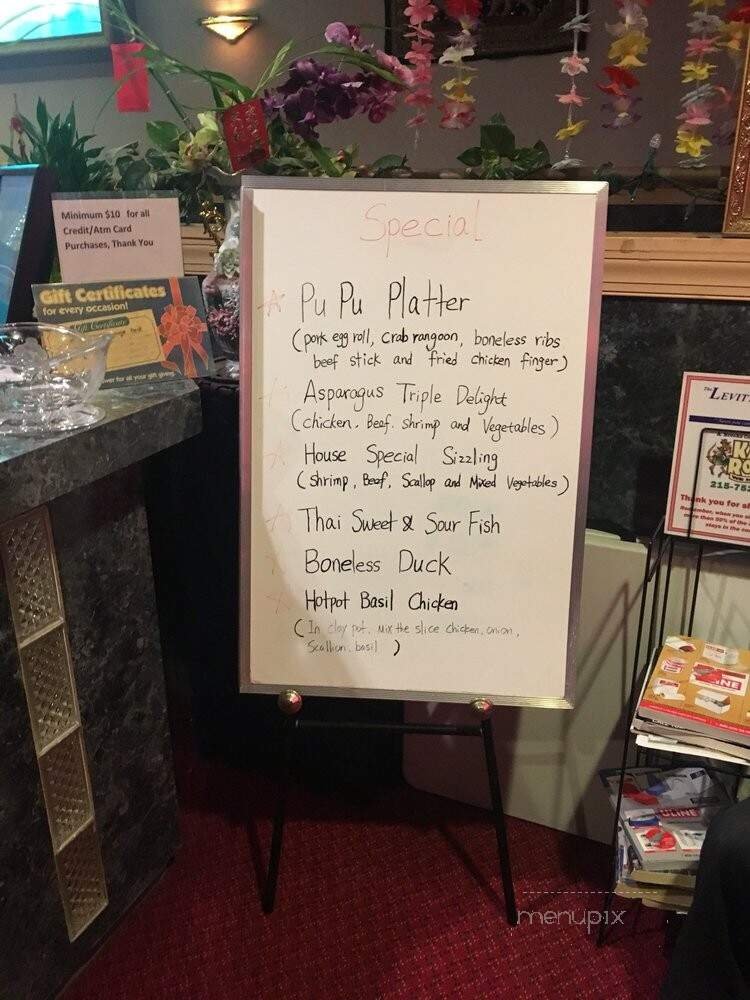 Minimum $10 for all
Credit/Atm Card
Purchases, Thank You
Gift Certificates
for every occasion!
Gift Certificate
Special
Pu Pu Platter
(pork egg roll, crab rangoon, boneless ribs
beef stick and fried chicken finger)
Asparagus Triple Delight
(chicken. Beef. shrimp and Vegetables)
House Special Sizzling
(shrimp, Beef, Scallop and Mixed Vegetables)
Thai Sweet & Sour Fish
Boneless Duck
Hotpot Basil Chicken
(In clay pot, Mix the slice chicken, onion,
Scallion, basil)
The LEVIT
215-75
Thank you for
Remember, when you
more than 50% of the
stays in the
ULINE
menupix